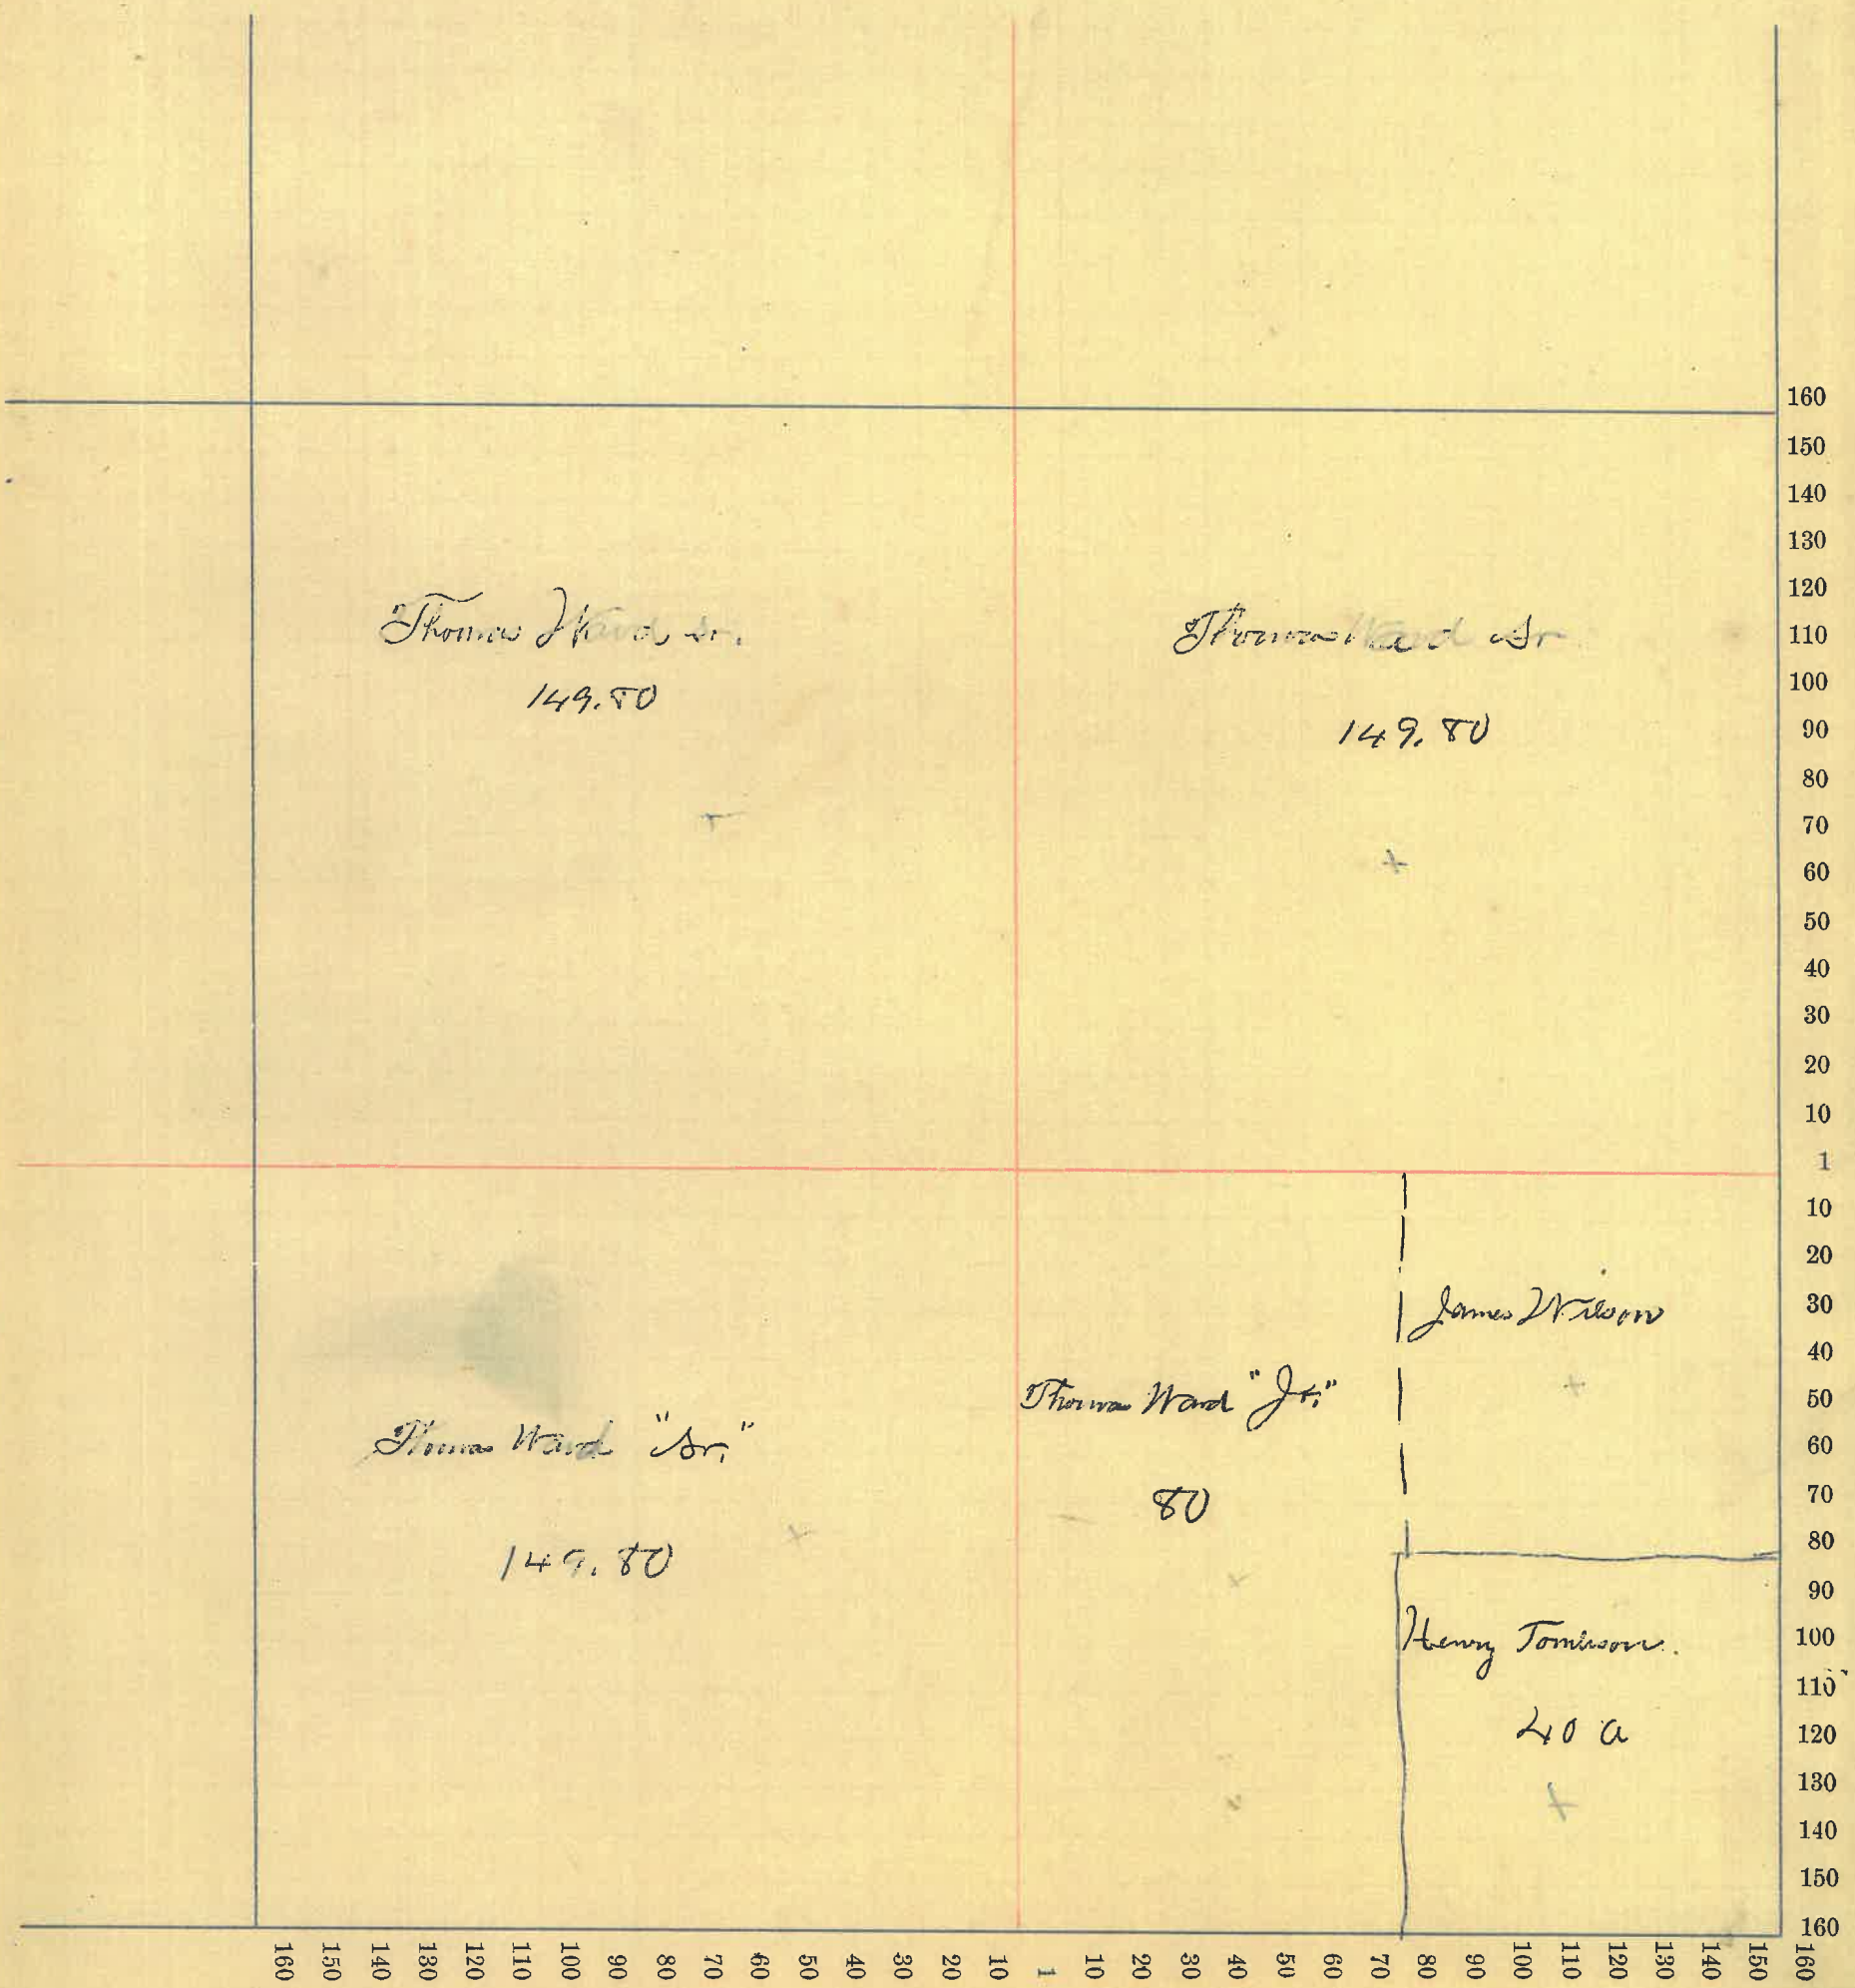 Thomas Ward Sr.
149.80
Thomas Ward Sr
149.80
Thomas Ward "Sr."
149.80
Thomas Ward "Jr."
80
James Wilson
Henry Tomlison.
40 a
160
150
140
130
120
110
100
90
80
70
60
50
40
30
20
10
1
10
20
30
40
50
60
70
80
90
100
110
120
130
140
150
160
160 150 140 130 120 110 100 90 80 70 60 50 40 30 20 10 1 10 20 30 40 50 60 70 80 90 100 110 120 130 140 150 160